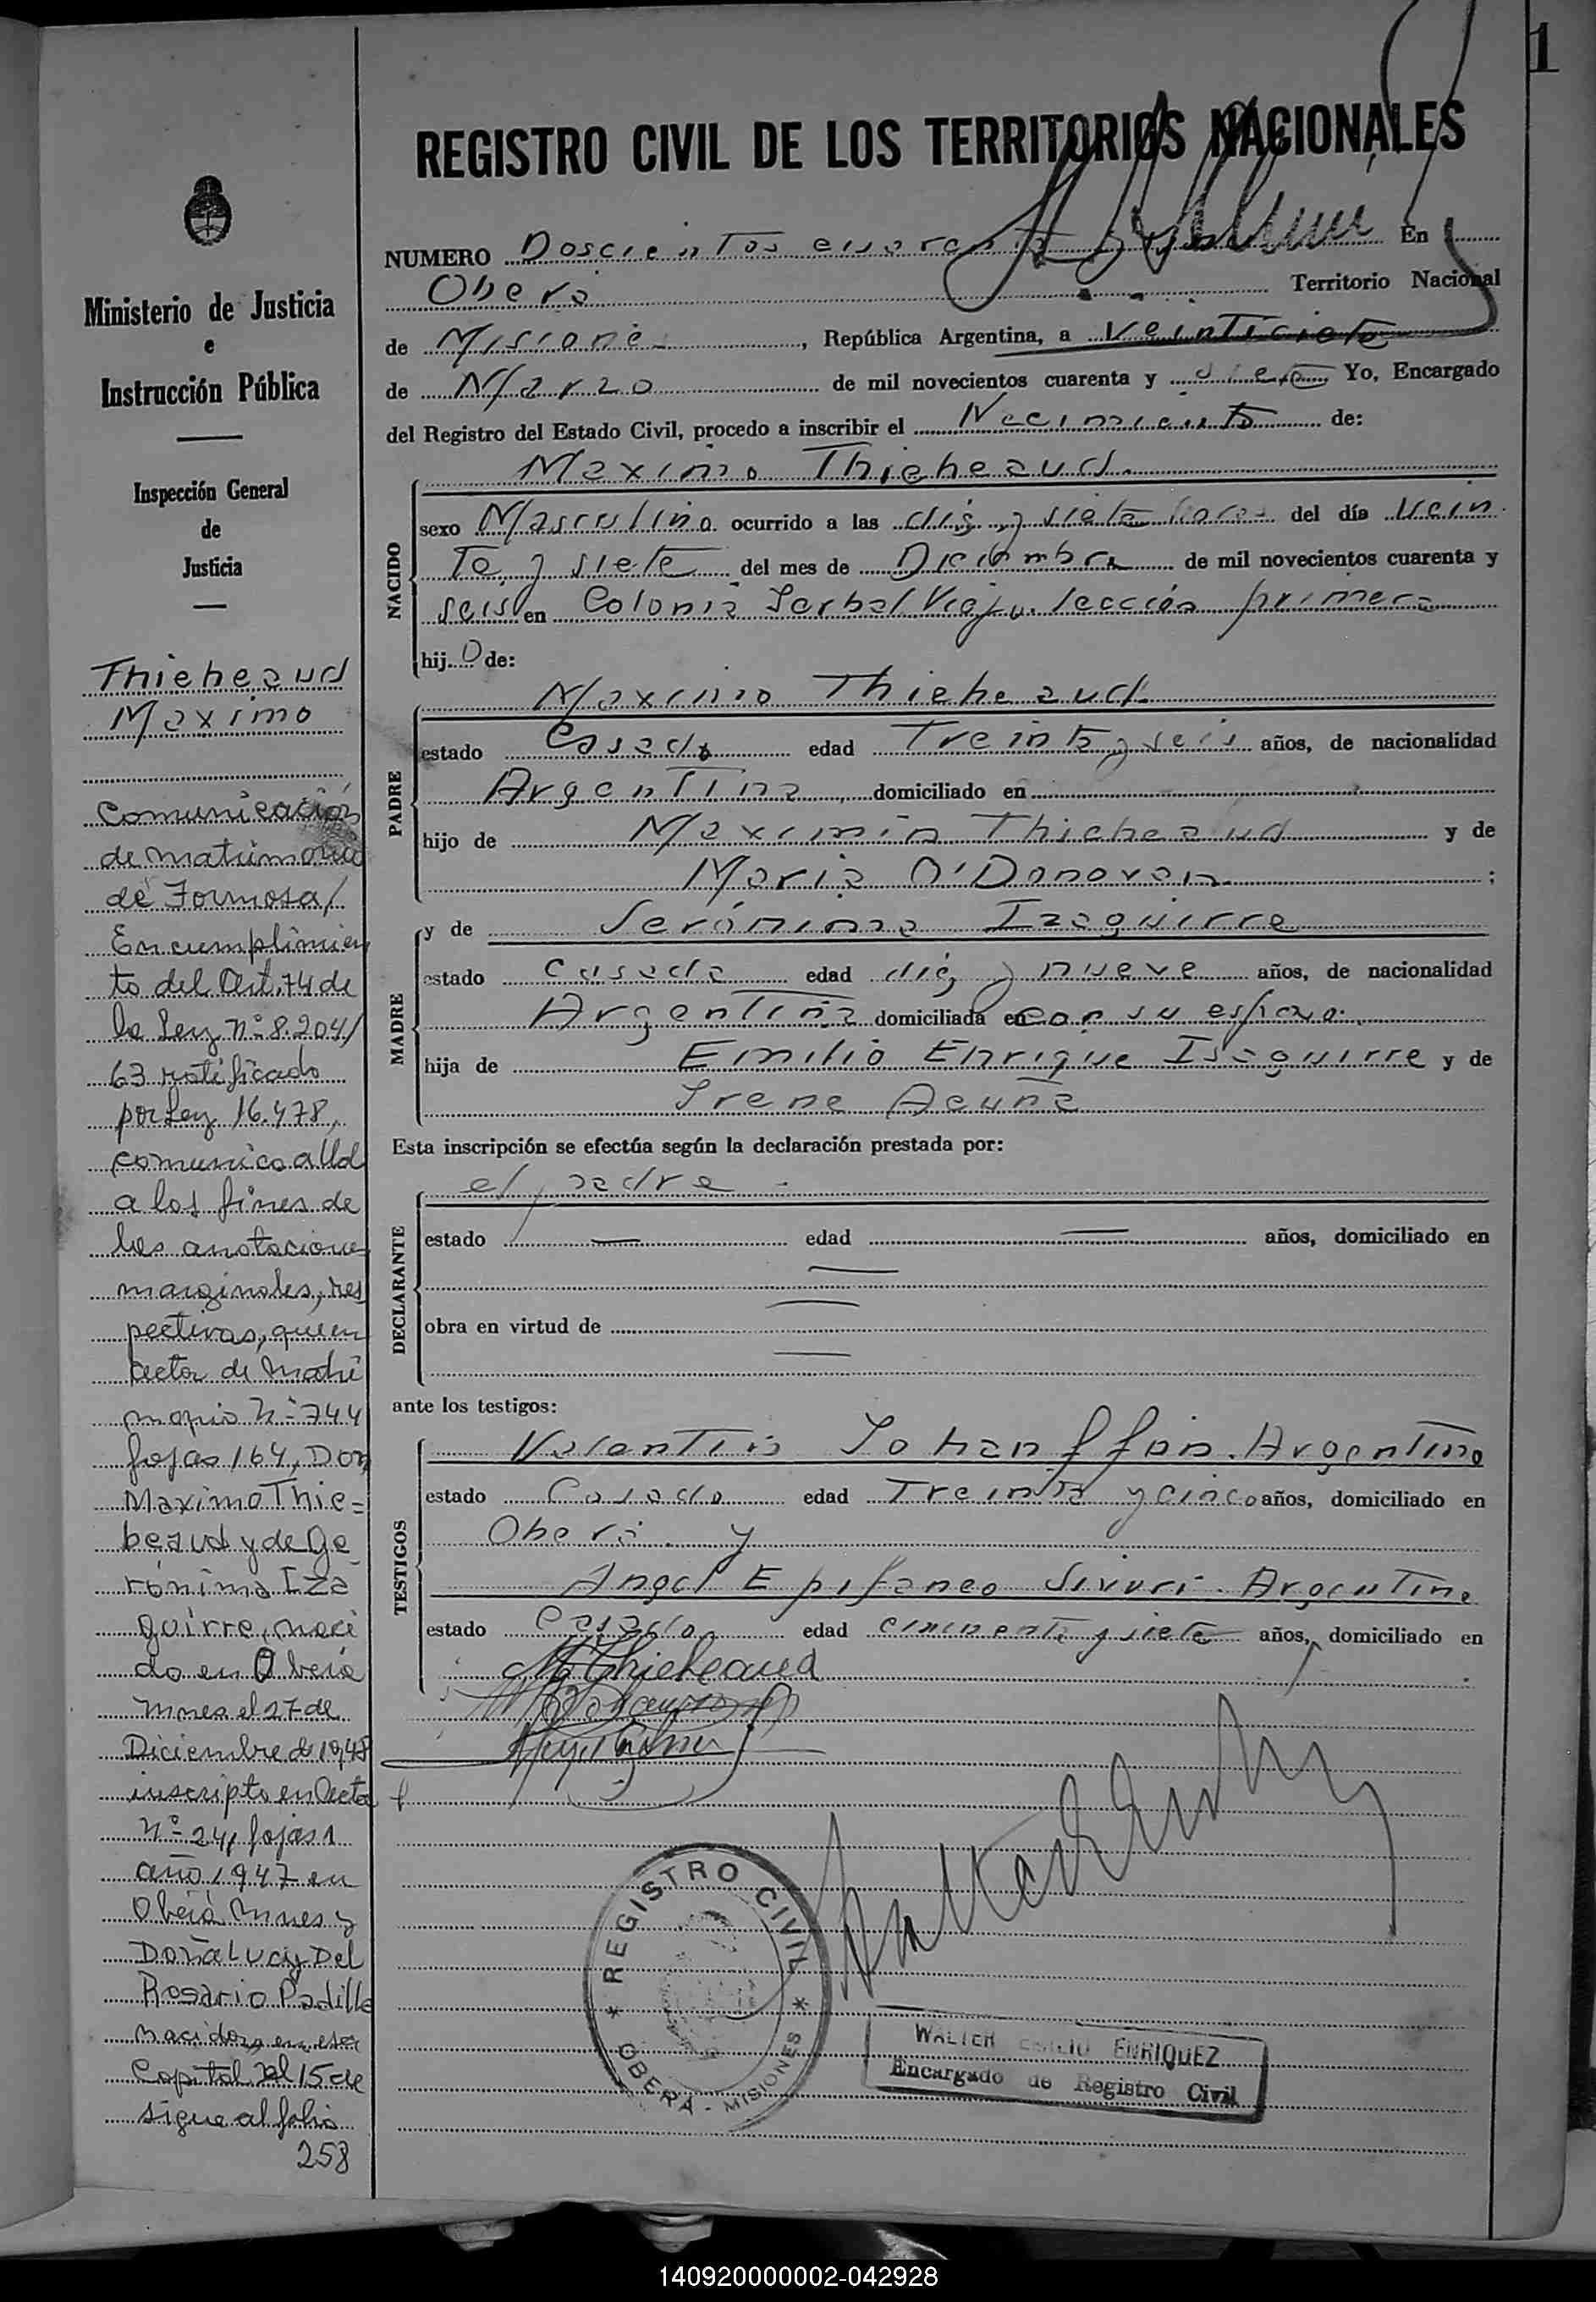 1
REGISTRO CIVIL DE LOS TERRITORIOS NACIONALES
NUMERO Doscientos cuarenta En
Oberá Territorio Nacional
de Misiones, República Argentina, a Veintisiete
de Marzo de mil novecientos cuarenta y siete Yo, Encargado
del Registro del Estado Civil, procedo a inscribir el Nacimiento de:
NACIDO
Maximo Thiebeaud.
sexo Masculino ocurrido a las diez y siete horas del día Vein
te y siete del mes de Diciembre de mil novecientos cuarenta y
seis en Colonia Yerbal Viejo. sección primera
hijo de:
PADRE
Maximo Thiebeaud.
estado Casado edad Treinta y seis años, de nacionalidad
Argentina domiciliado en
hijo de Maximin Thiebeaud y de
Maria O'Donovan ;
MADRE
y de Jerónima Izaguirre
estado casada edad diez y nueve años, de nacionalidad
Argentina domiciliada en con su esposo.
hija de Emilio Enrique Isaguirre y de
Irene Acuña
Esta inscripción se efectúa según la declaración prestada por:
DECLARANTE
el padre -
estado — edad — años, domiciliado en
obra en virtud de
ante los testigos:
TESTIGOS
Valentin Argentino
estado Casado edad Treinta y cinco años, domiciliado en
Oberá. y
Angel Epifaneo Argentino
estado casado edad cincuenta y siete años, domiciliado en
M Thiebeaud
REGISTRO CIVIL
OBERA - MISIONES
WALTER EMILIO ENRIQUEZ
Encargado de Registro Civil
Ministerio de Justicia
e
Instrucción Pública
Inspección General
de
Justicia
Thiebeaud
Maximo
Comunicación
de matrimonio
de Formosa/
En cumplimien
to del Art. 74 de
la Ley Nº 8.204/
63 ratificado
por Ley 16.478,
comunico a Ud
a los fines de
las anotaciones
marginales, res
pectivas, que en
acta de Matri
monio Nº 744
fojas 164, Don
Maximo Thie=
beaud y de Ge
rónima Iza
guirre, naci
do en Oberá
Mnes el 27 de
Diciembre de 1948
inscripto en Acta
Nº 241 fojas 1
año 1947 en
Oberá Mnes y
Doña Lucy Del
Rosario Padilla
nacida en esa
Capital el 15 de
sigue al folio
258
140920000002-042928